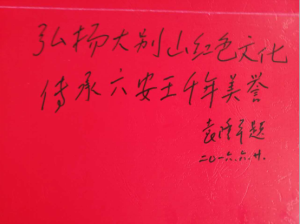 弘扬大别山红色文化
传承六安王千年美誉
袁隆平题
二〇一六.六.廿.